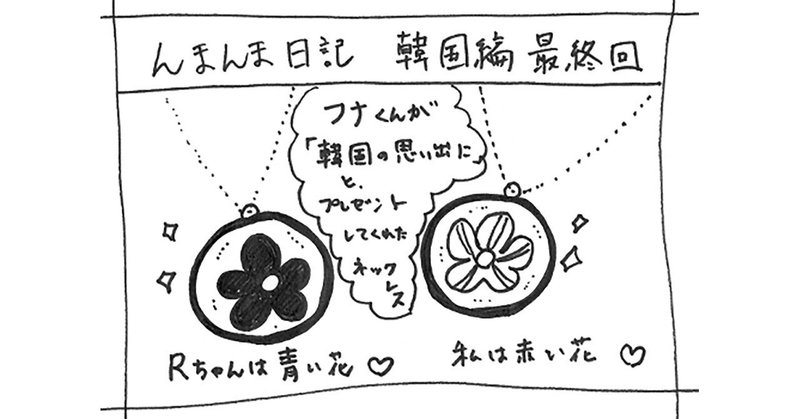 んまんま日記 韓国編 最終回
フナくんが
「韓国の思い出に」
と、
プレゼント
してくれた
ネックレス
Rちゃんは青い花♡
私は赤い花♡